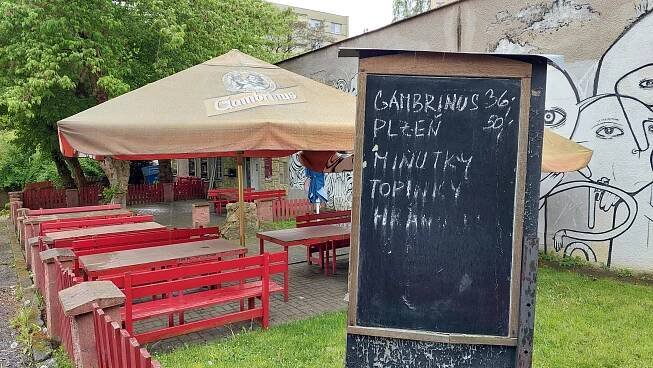 Gambrinus
GAMBRINUS 36,-
PLZEŇ 50,-
MINUTKY
TOPINKY